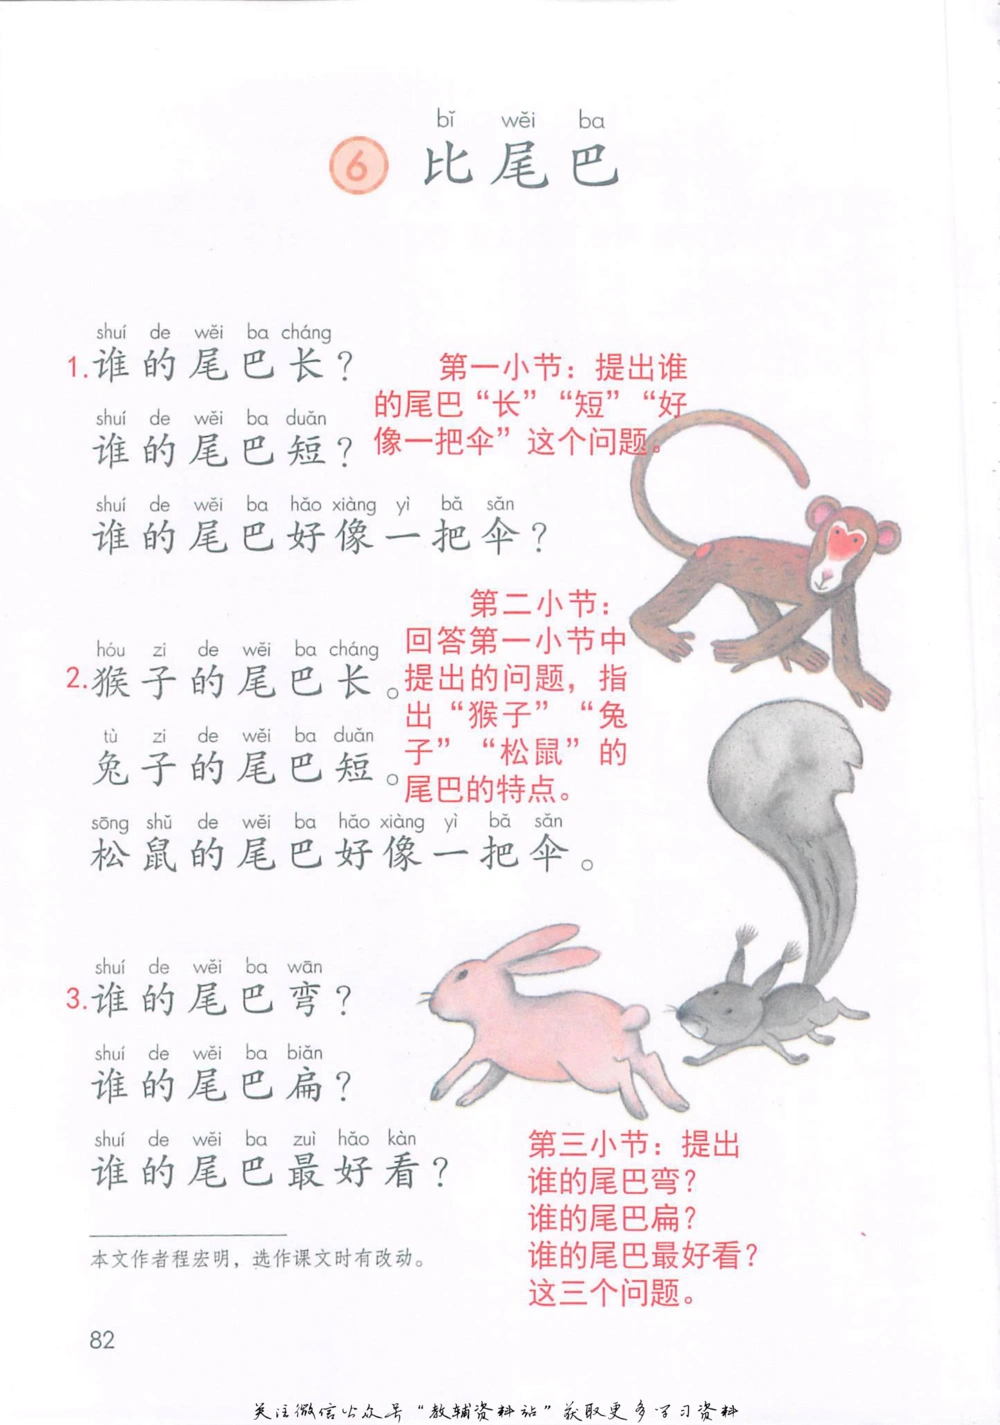 bǐ wěi ba
6 比尾巴
shuí de wěi ba cháng
1.谁的尾巴长？
第一小节：提出谁
的尾巴“长”“短”“好
像一把伞”这个问题。
shuí de wěi ba duǎn
谁的尾巴短？
shuí de wěi ba hǎo xiàng yì bǎ sǎn
谁的尾巴好像一把伞？
hóu zi de wěi ba cháng
2.猴子的尾巴长。
第二小节：
回答第一小节中
提出的问题，指
出“猴子”“兔
子”“松鼠”的
尾巴的特点。
tù zi de wěi ba duǎn
兔子的尾巴短。
sōng shǔ de wěi ba hǎo xiàng yì bǎ sǎn
松鼠的尾巴好像一把伞。
shuí de wěi ba wān
3.谁的尾巴弯？
shuí de wěi ba biǎn
谁的尾巴扁？
shuí de wěi ba zuì hǎo kàn
谁的尾巴最好看？
第三小节：提出
谁的尾巴弯？
谁的尾巴扁？
谁的尾巴最好看？
这三个问题。
本文作者程宏明，选作课文时有改动。
82
关注微信公众号“教辅资料站”获取更多学习资料